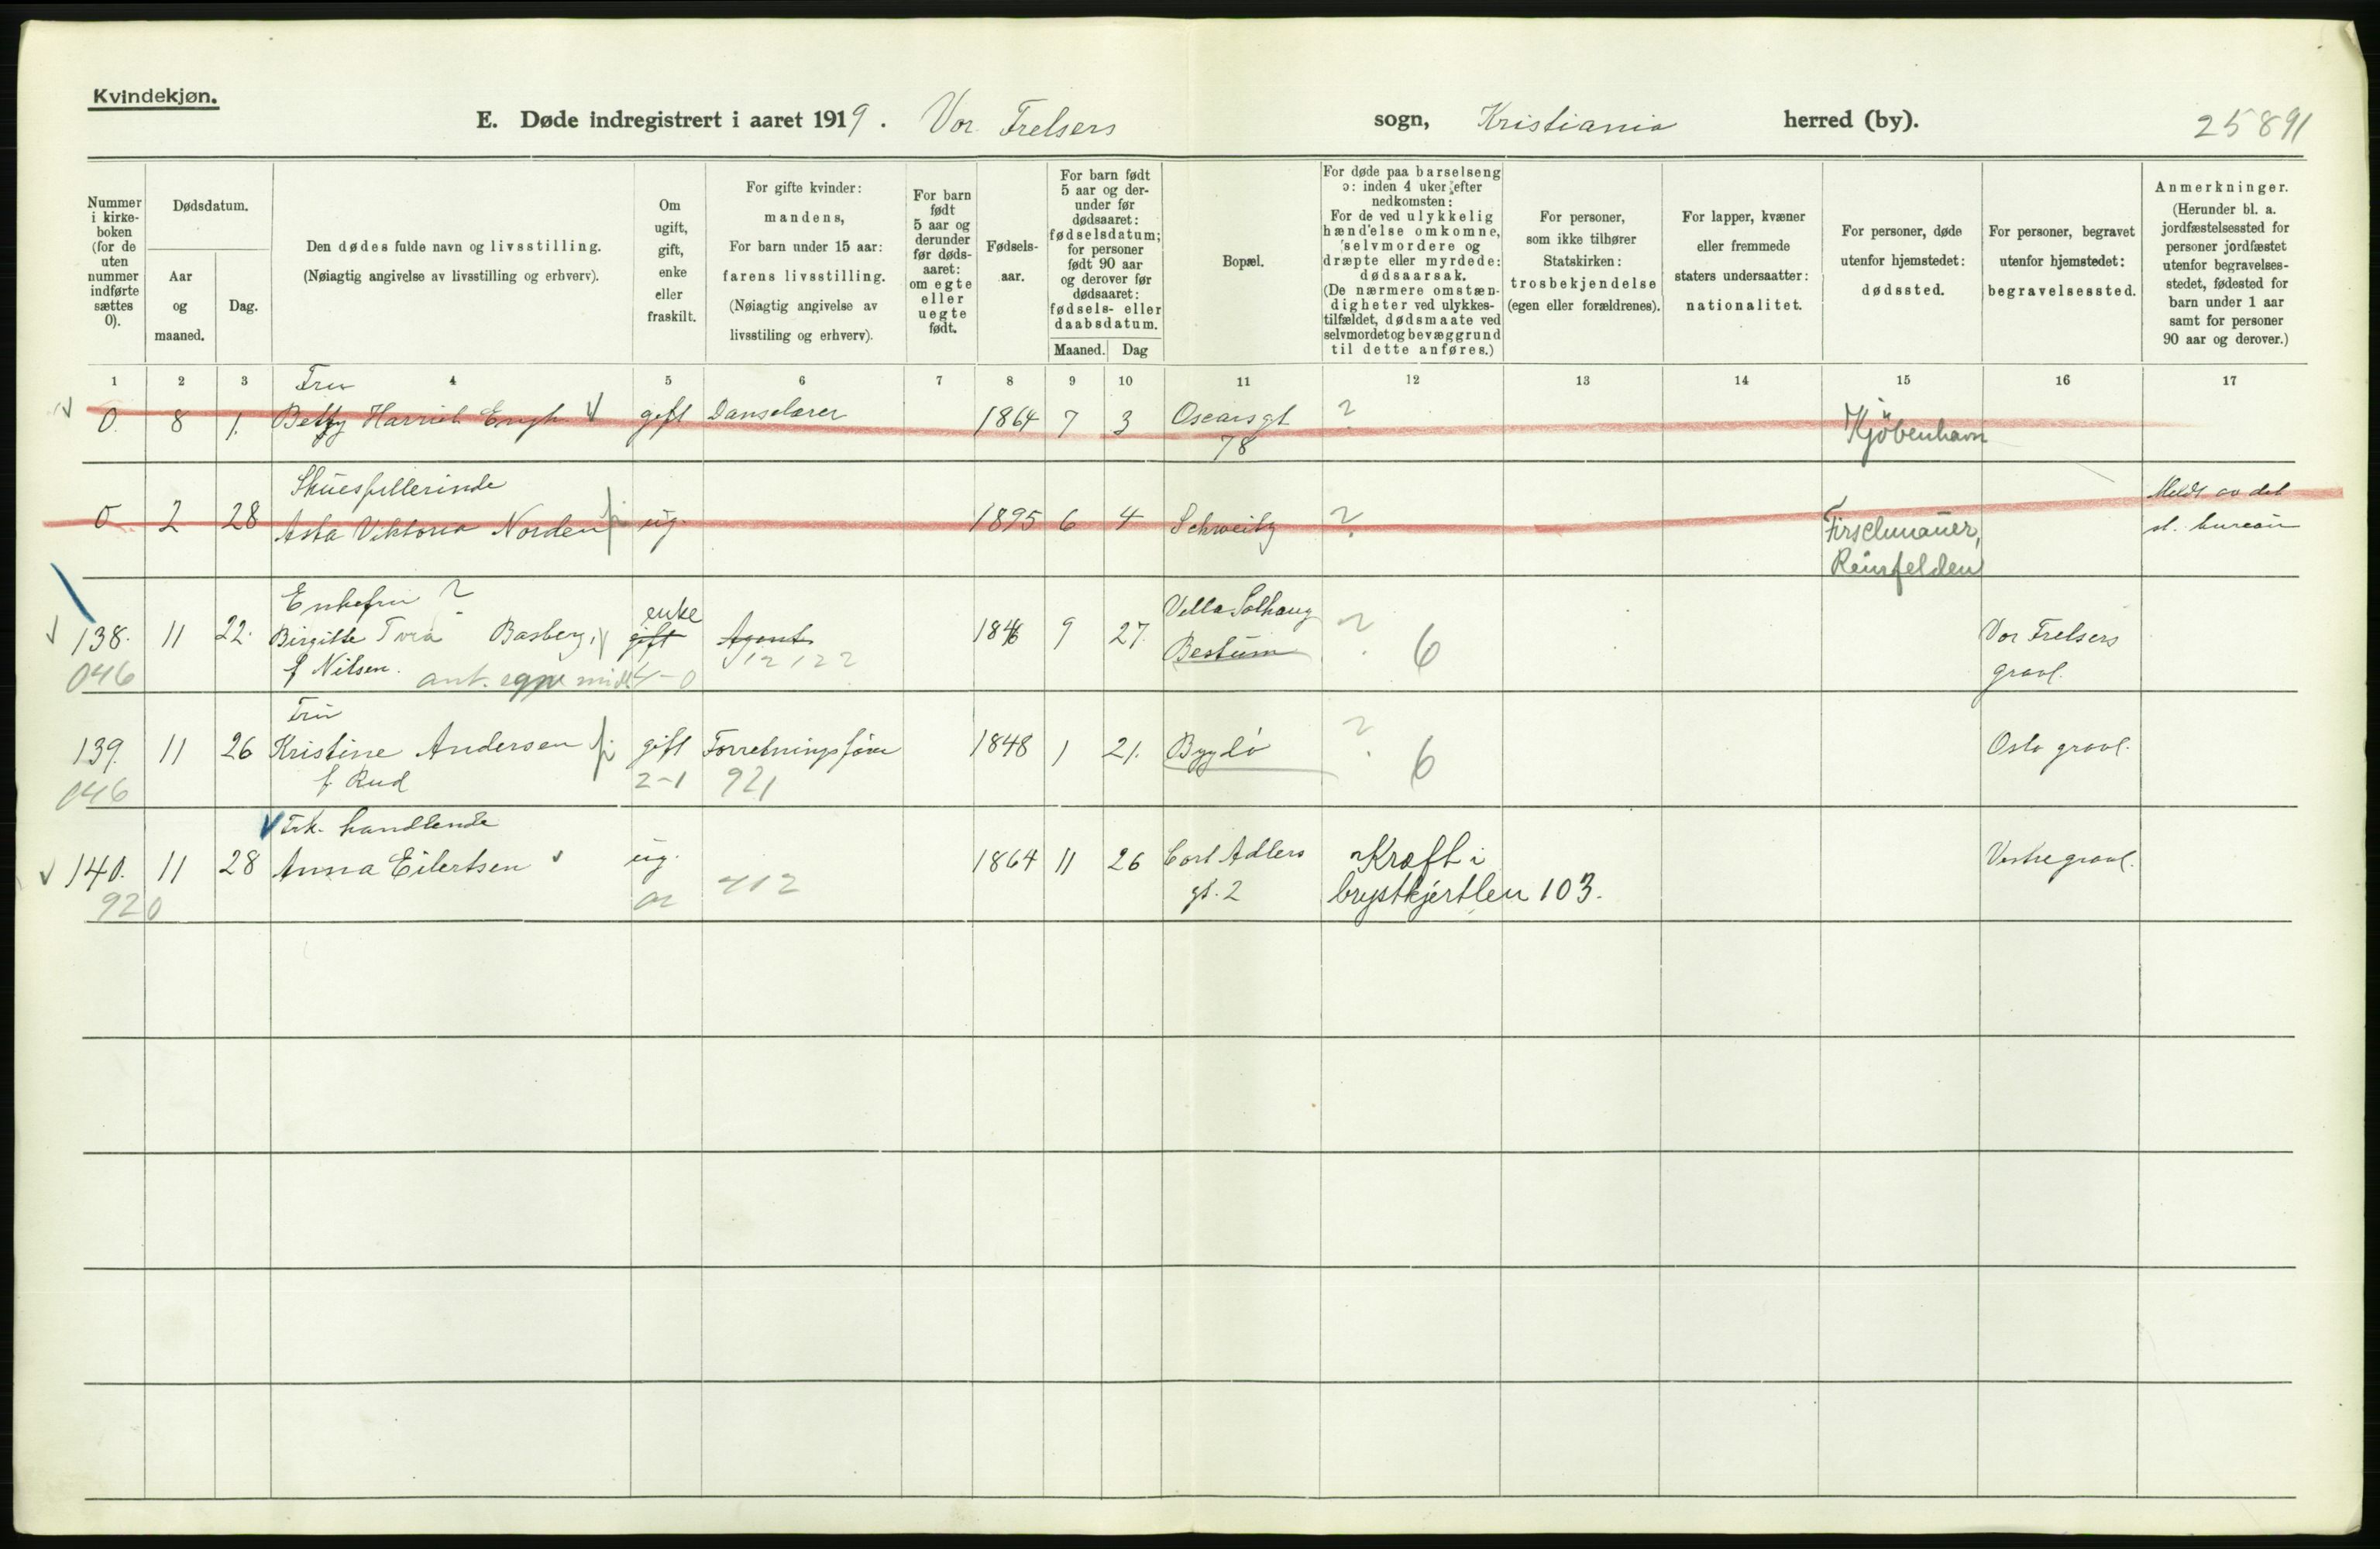 Kvindekjøn.
E. Døde indregistrert i aaret 1919. Vor Frelsers sogn, Kristiania herred (by). 25891
Nummer i kirkeboken (for de uten nummer indførte sættes 0).
Dødsdatum.
Aar og maaned.
Dag.
Den dødes fulde navn og livsstilling.
(Nøiagtig angivelse av livsstilling og erhverv).
Om ugift, gift, enke eller fraskilt.
For gifte kvinder: mandens,
For barn under 15 aar: farens livsstilling.
(Nøiagtig angivelse av livsstiling og erhverv).
For barn født 5 aar og derunder før dødsaaret: om egte eller uegte født.
Fødselsaar.
For barn født 5 aar og derunder før dødsaaret: fødselsdatum; for personer født 90 aar og derover før dødsaaret: fødsels- eller daabsdatum.
Maaned. Dag
Bopæl.
For døde paa barselseng ɔ: inden 4 uker efter nedkomsten:
For de ved ulykkelig hændelse omkomne, selvmordere og dræpte eller myrdede: dødsaarsak.
(De nærmere omstændigheter ved ulykkestilfældet, dødsmaate ved selvmordet og bevæggrund til dette anføres.)
For personer, som ikke tilhører Statskirken: trosbekjendelse (egen eller forældrenes).
For lapper, kvæner eller fremmede staters undersaatter: nationalitet.
For personer, døde utenfor hjemstedet: dødssted.
For personer, begravet utenfor hjemstedet: begravelsessted.
Anmerkninger.
(Herunder bl. a. jordfæstelsessted for personer jordfæstet utenfor begravelsesstedet, fødested for barn under 1 aar samt for personer 90 aar og derover.)
1 2 3 4 5 6 7 8 9 10 11 12 13 14 15 16 17
Fru
0. 8 1. Betty Harriet Engh gift Danselærer 1864 7 3 Oscarsgt 78 ? Kjöbenhavn
Skuespillerinde
0 2 28 Asta Viktoria Norden ug. 1895 6 4 Schweitz ? Firschmauer, Reinfelden Meldt av det st. bureau
Enkefru ?
138. 11 22. Birgitte Tvea Basberg, enke gift Agent 1846 9 27. Villa Solhaug Bestum ? 6 Vor Frelsers gravl.
046 f Nilsen. ant. egne midl. 4-0 12122
Fru
139. 11 26 Kristine Andersen gift Forretningsføre 1848 1 21. Bygdø ? 6 Oslo gravl.
046 f. Rud 2-1 921
Frk. handlende
140. 11 28 Anna Eilertsen ug. 1864 11 26 Carl Adlers gt. 2 Kræft i brystkjertlen 103. Vestre gravl.
920 712